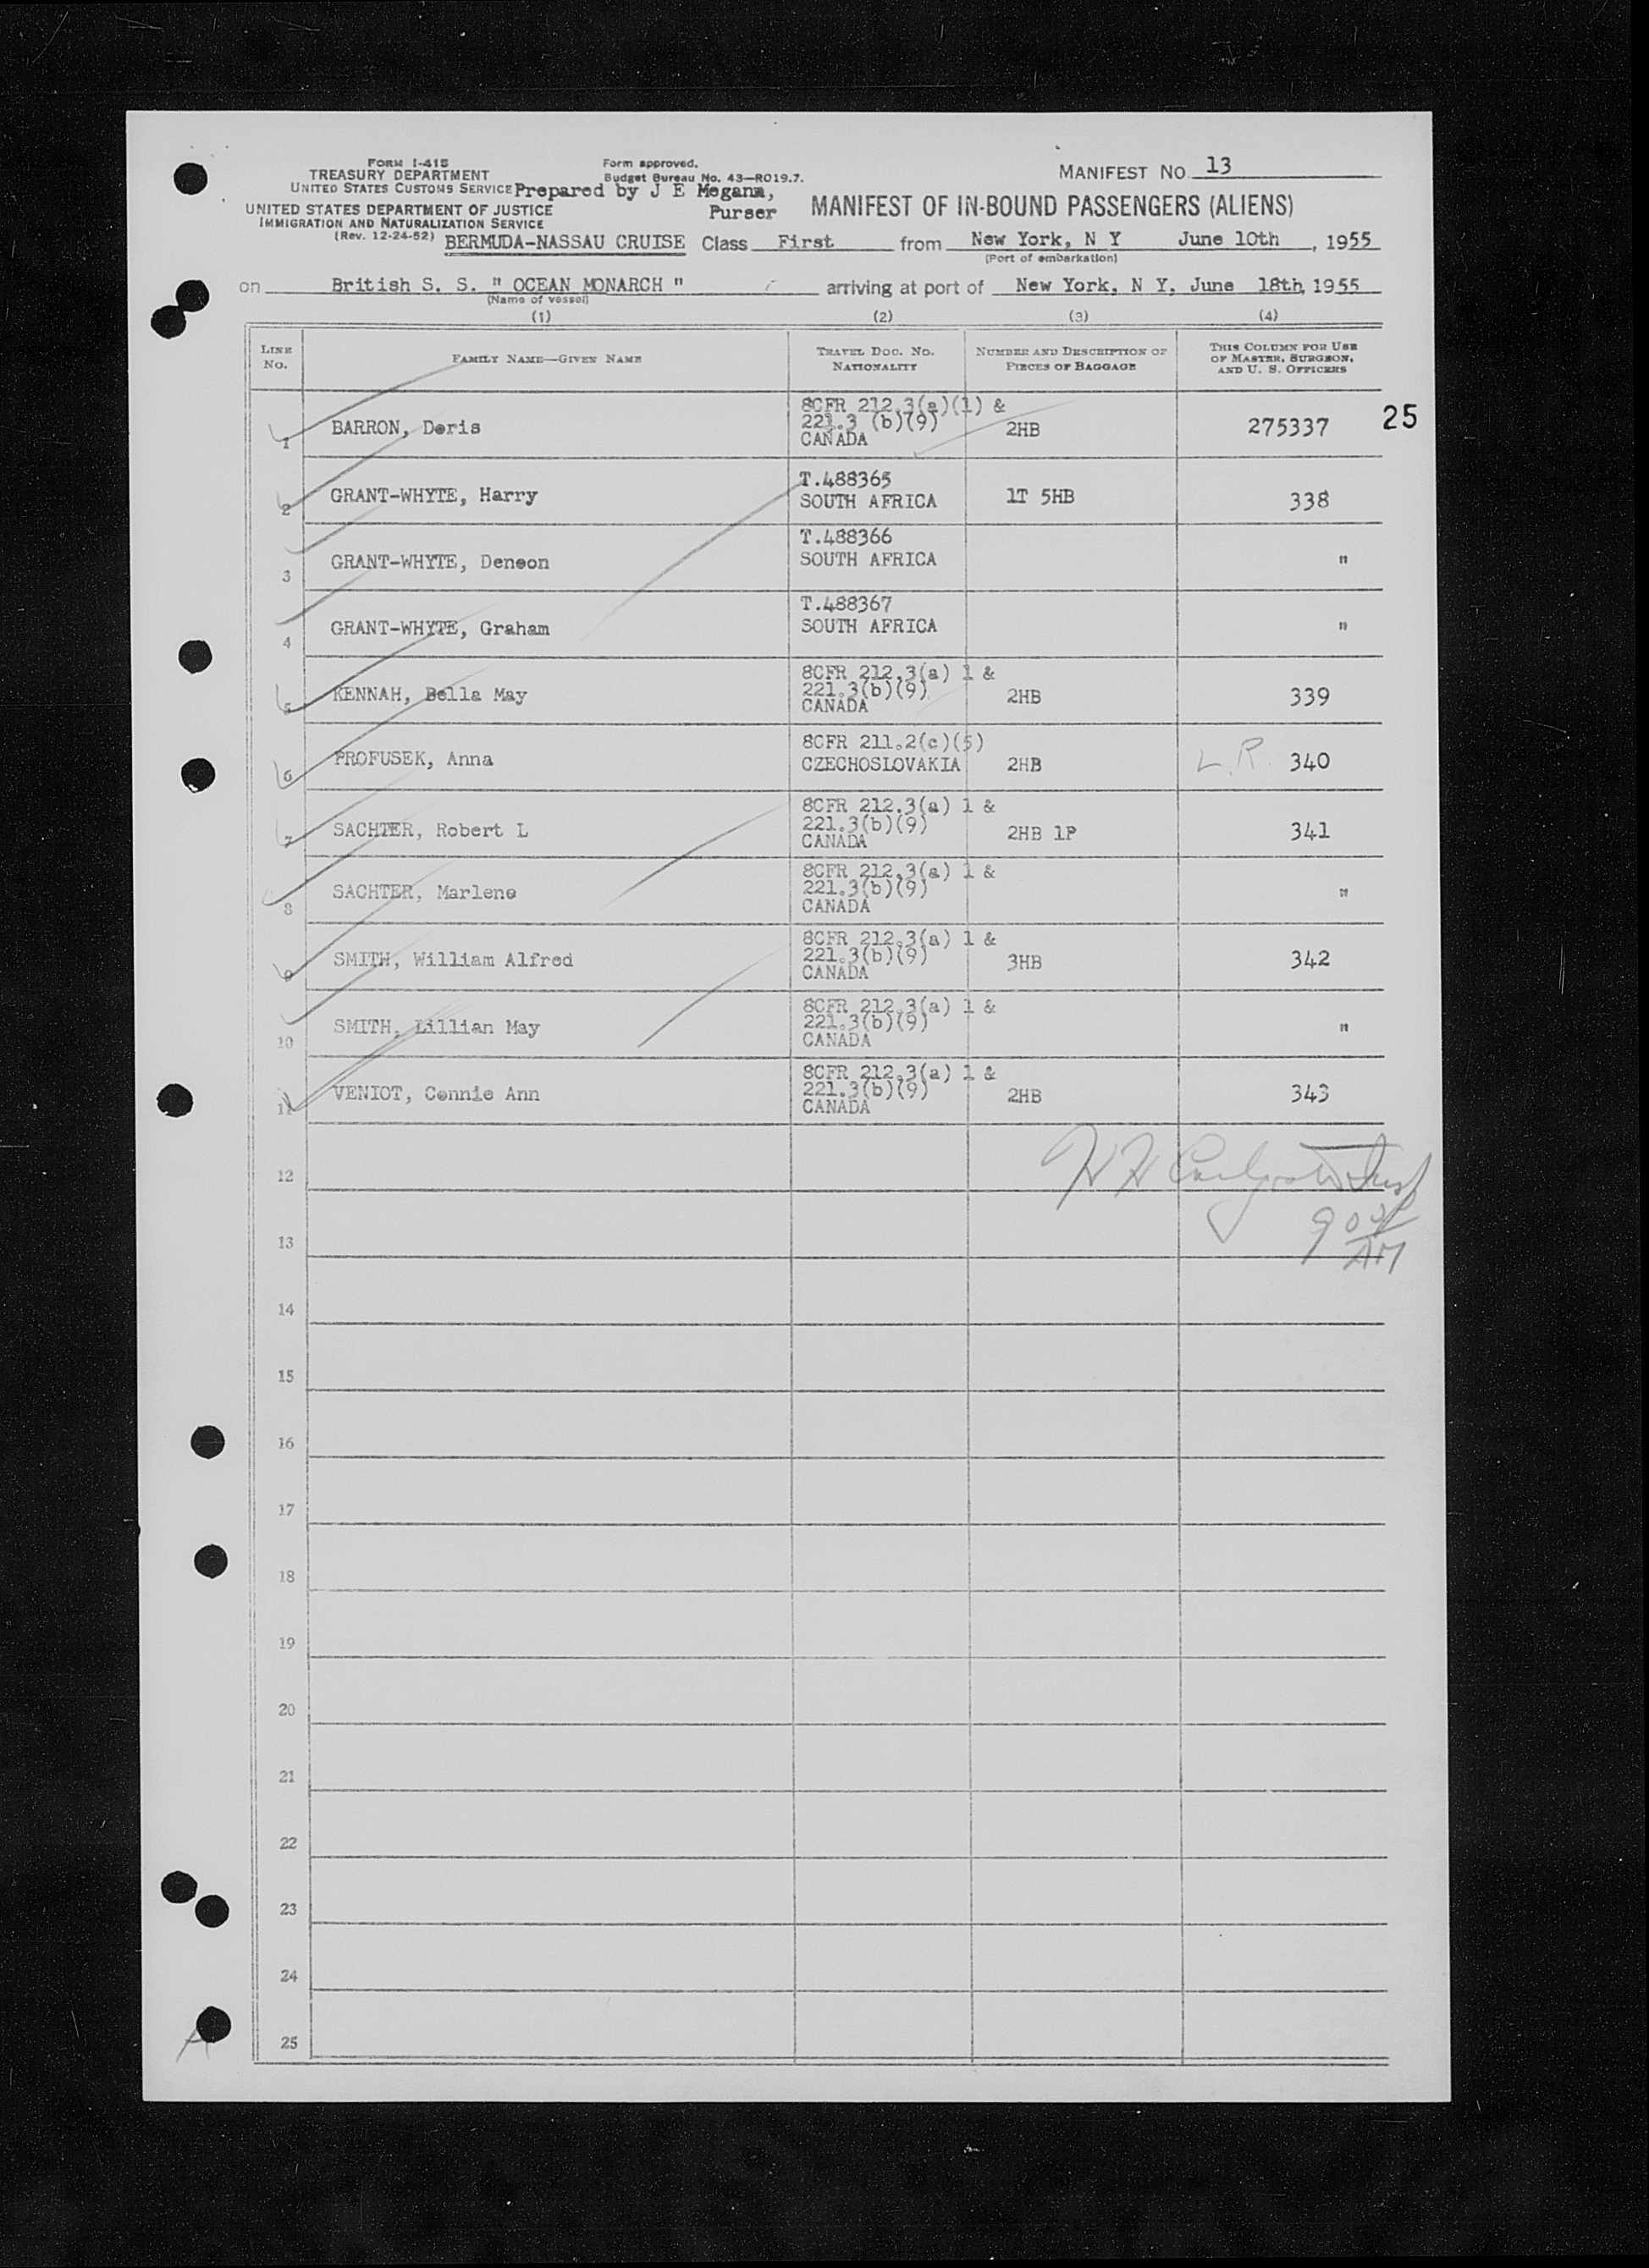 FORM I-415
TREASURY DEPARTMENT
UNITED STATES CUSTOMS SERVICE
UNITED STATES DEPARTMENT OF JUSTICE
IMMIGRATION AND NATURALIZATION SERVICE
(Rev. 12-24-52)
Form approved.
Budget Bureau No. 43—R019.7.
Prepared by J E Megann,
Purser
MANIFEST NO. 13
MANIFEST OF IN-BOUND PASSENGERS (ALIENS)
BERMUDA-NASSAU CRUISE Class First from New York, N Y June 10th, 1955
(Port of embarkation)
on British S. S. " OCEAN MONARCH " arriving at port of New York, N Y, June 18th, 1955
(Name of vessel)
(1) (2) (3) (4)
LINE NO. FAMILY NAME—GIVEN NAME TRAVEL DOC. NO. NATIONALITY NUMBER AND DESCRIPTION OF PIECES OF BAGGAGE THIS COLUMN FOR USE OF MASTER, SURGEON, AND U. S. OFFICERS
25
1 BARRON, Doris 8CFR 212.3(a)(1) & 221.3 (b)(9) CANADA 2HB 275337
2 GRANT-WHYTE, Harry T.488365 SOUTH AFRICA 1T 5HB 338
3 GRANT-WHYTE, Deneon T.488366 SOUTH AFRICA "
4 GRANT-WHYTE, Graham T.488367 SOUTH AFRICA "
5 KENNAH, Bella May 8CFR 212.3(a) 1 & 221.3(b)(9) CANADA 2HB 339
6 PROFUSEK, Anna 8CFR 211.2(c)(5) CZECHOSLOVAKIA 2HB L.R. 340
7 SACHTER, Robert L 8CFR 212.3(a) 1 & 221.3(b)(9) CANADA 2HB 1P 341
8 SACHTER, Marlene 8CFR 212.3(a) 1 & 221.3(b)(9) CANADA "
9 SMITH, William Alfred 8CFR 212.3(a) 1 & 221.3(b)(9) CANADA 3HB 342
10 SMITH, Lillian May 8CFR 212.3(a) 1 & 221.3(b)(9) CANADA "
11 VENIOT, Connie Ann 8CFR 212.3(a) 1 & 221.3(b)(9) CANADA 2HB 343
12
13
AM
14
15
16
17
18
19
20
21
22
23
24
25
A